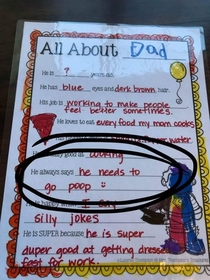 All About Dad
He is ? years old.
He has blue eyes and dark brown hair.
His job is working to make people
feel better sometimes.
He loves to eat every food my mom cooks
water
good at cooking
He always says he needs to
go poop
I say
silly jokes
He is SUPER because he is super
duper good at getting dressed
fast for work.